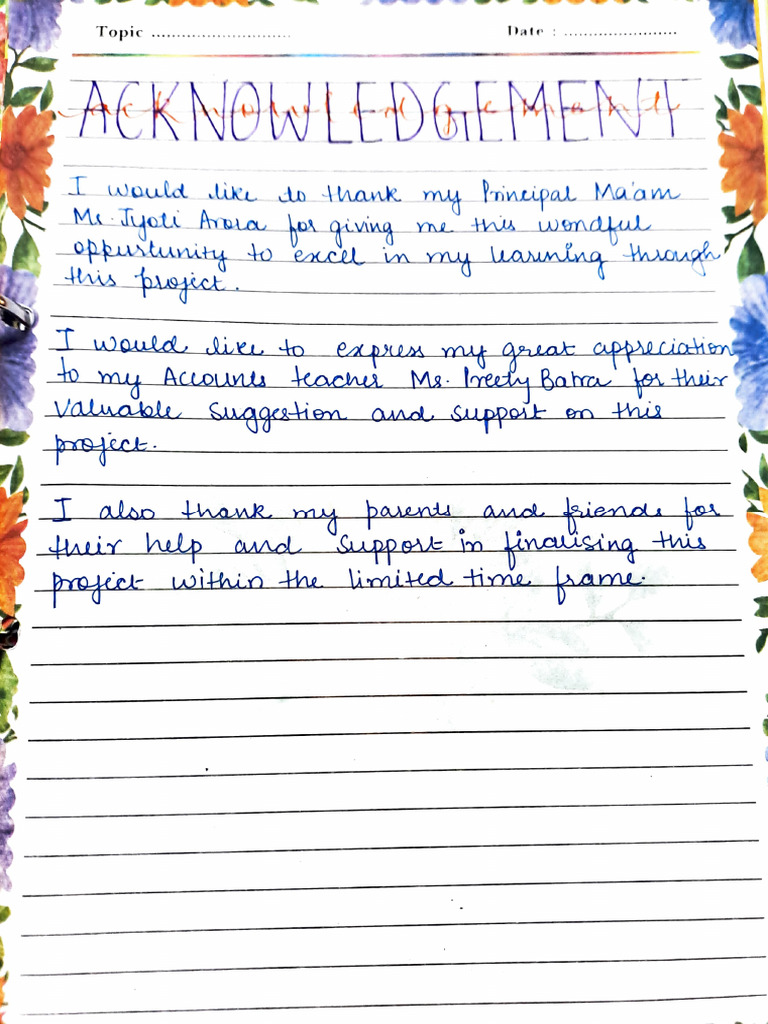 Topic ............................ Date : .......................
ACKNOWLEDGEMENT
I would like to thank my Principal Ma'am
Ms. Jyoti Arora for giving me this wondful
oppurtunity to excel in my learning through
this project.
I would like to express my great appreciation
to my Accounts teacher Ms. Preety Batra for their
valuable suggestion and support on this
project.
I also thank my parents and friends for
their help and support in finalising this
project within the limited time frame.